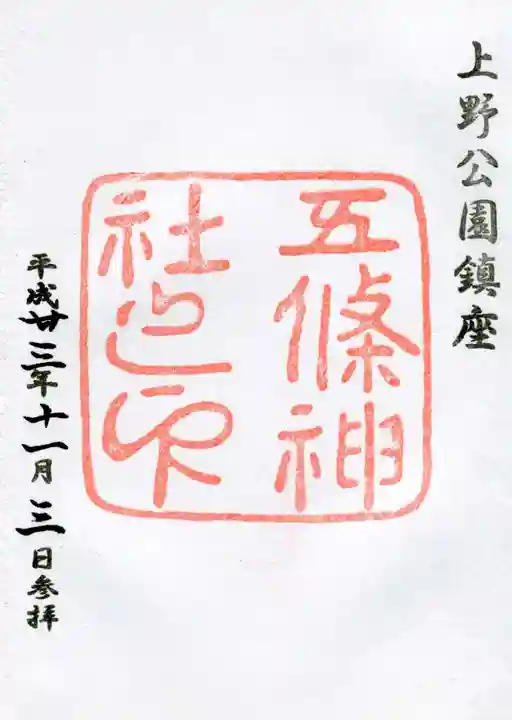 上野公園鎮座
五條神
社之印
平成廿三年十一月三日参拝